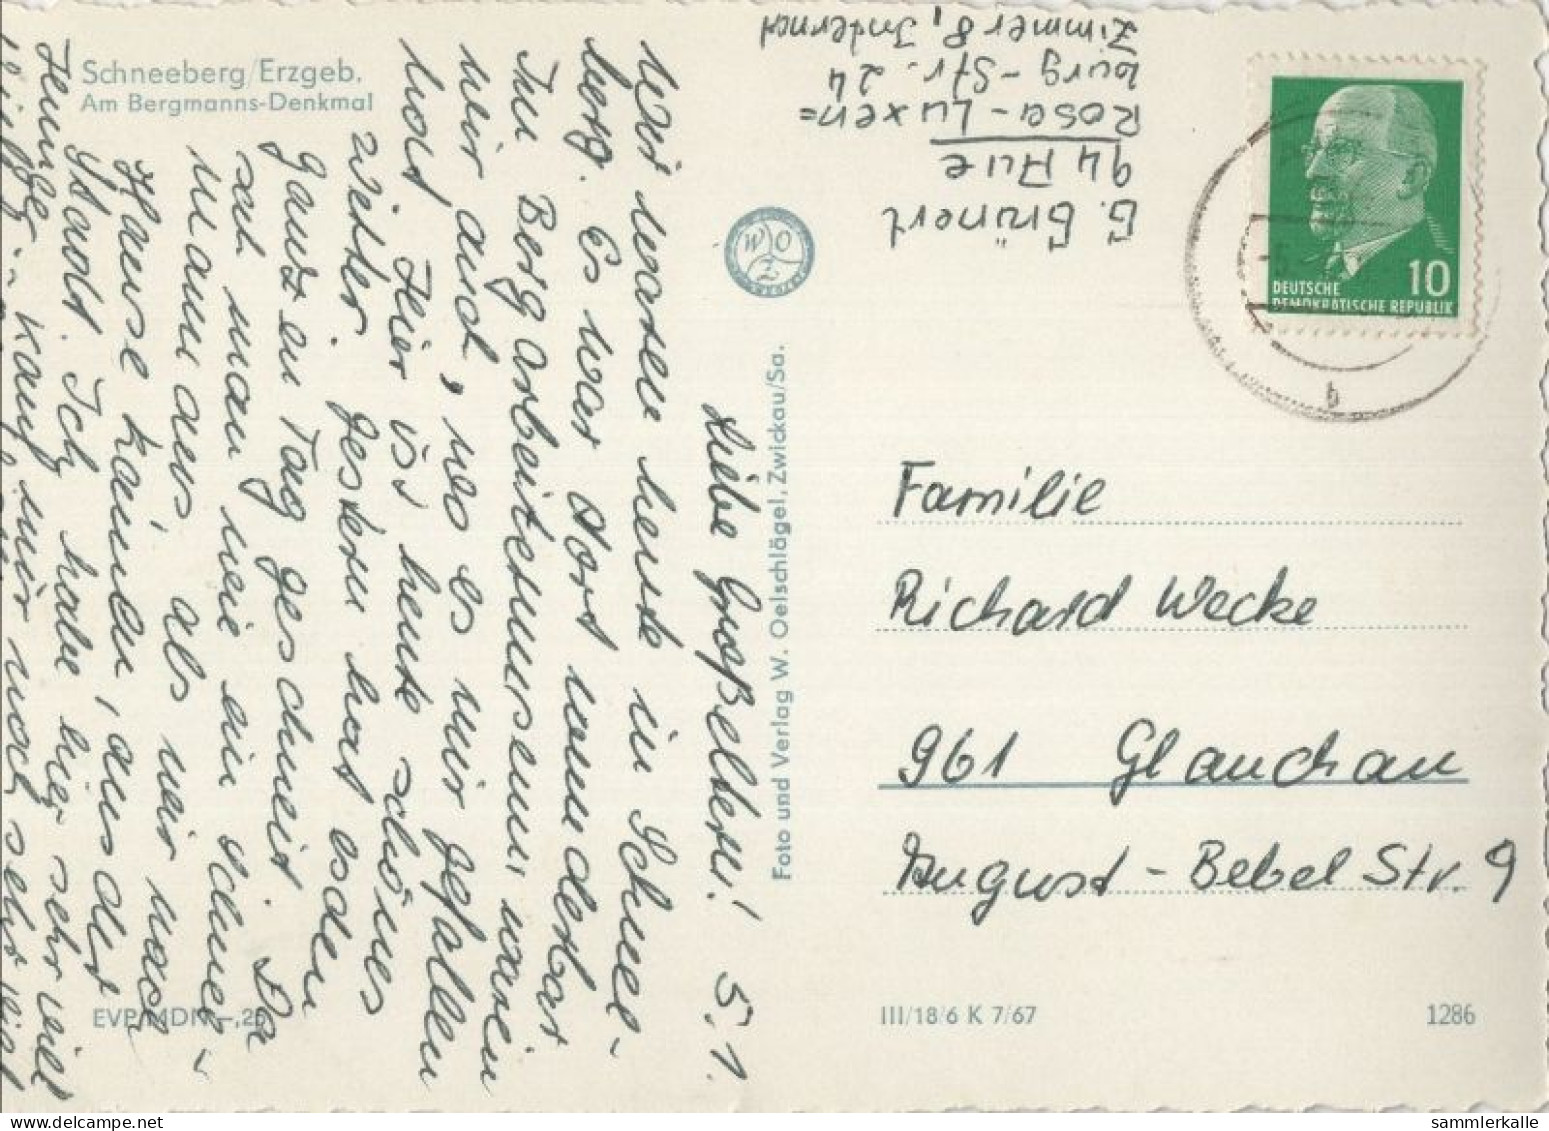 Schneeberg/Erzgeb.
Am Bergmanns-Denkmal
Liebe Großeltern! 5.1.
Wir waren heute in Schnee-
berg. Es war dort wunderbar
Im Bergarbeitermuseum waren
wir auch, wo es mir gefallen
hat. Hier ist heute schönes
Wetter. Gestern hat es den
ganzen Tag geschneit. Da
sah man wie ein Schnee-
mann aus als wir nach
Hause kamen, aus der
Stadt. Ich habe hier sehr viel
EVP MDN -,25
Foto und Verlag W. Oelschlägel, Zwickau/Sa.
W O
Z
G. Grünert
94 Aue
Rosa-Luxem=
burg-Str. 24
Zimmer 8, Internat
DEUTSCHE
DEMOKRATISCHE REPUBLIK
10
b
Familie
Richard Wecke
961 Glauchau
August-Bebel Str. 9
III/18/6 K 7/67
1286
sammlerkalle